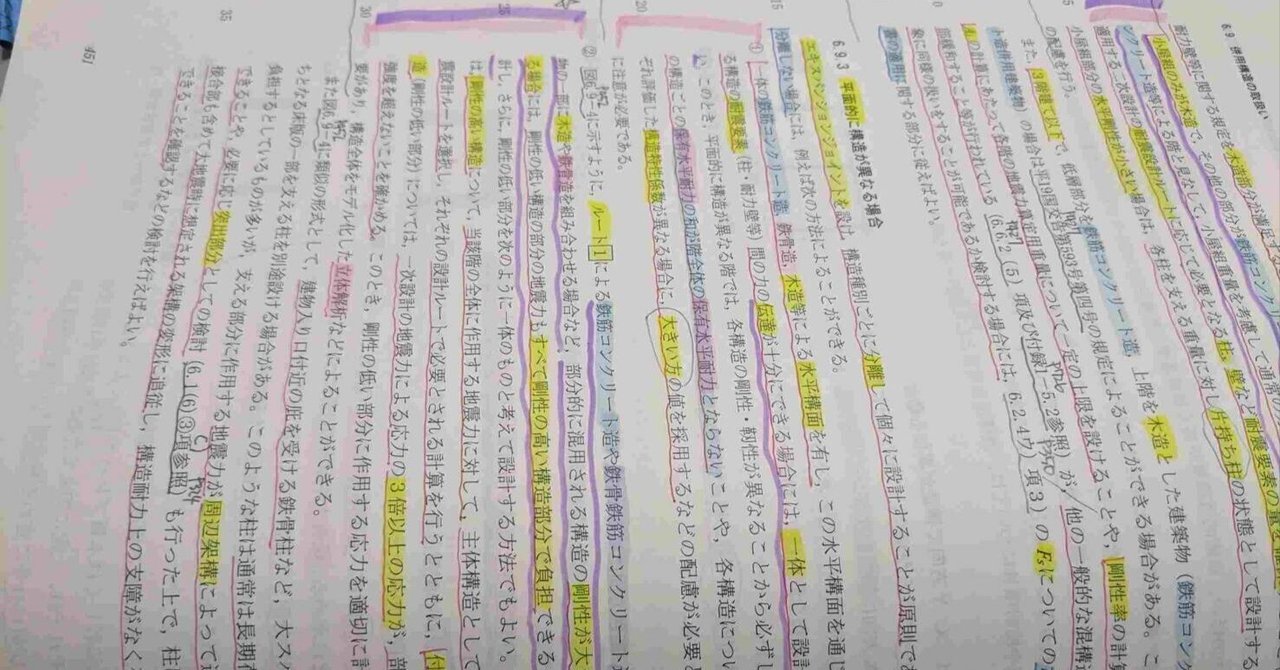 6.9 併用構造の取扱い
耐力壁等に関する規定を木造部分が満足す
小屋組のみが木造で、その他の部分が鉄筋コンク
ンクリート造等による階と見なして、小屋組重量を考慮して通常
適用する二次設計の耐震設計ルートに応じて必要となる柱、壁など耐震要素の
小屋組部分の水平剛性が小さい場合は、各柱を支える重量に対し片持ち柱の状態として設計する
の配慮を行う。
5
また、3階建て以上で、低層部分を鉄筋コンクリート造、上階を木造とした建築物（鉄筋コン
ト造併用建築物）の場合は平19国交告第593号第四号の規定によることができる場合がある。こ
の計算にあたって各階の地震力算定用重量について一定の上限を設けることや、剛性率の計算
部緩和すること等が行われている（6.6.2（5）項及び付録1-5.2参照）が、他の一般的な混構
象に同様の扱いをすることが可能であるか検討する場合には、6.2.4ウ）項3）のFsについての
書の適用に関する部分に従えばよい。
6.9.3 平面的に構造が異なる場合
エキスパンションジョイントを設け、構造種別ごとに分離して個々に設計することが原則で
分離しない場合には、例えば次の方法によることができる。
15
① 一体の鉄筋コンクリート造、鉄骨造、木造等による水平構面を有し、この水平構面を通じ
る構造の耐震要素（柱・耐力壁等）間の力の伝達が十分にできる場合には、一体として設計
い。このとき、平面的に構造が異なる階では、各構造の剛性・靭性が異なることから必ずし
の構造ごとの保有水平耐力の和が階全体の保有水平耐力とならないことや、各構造につい
ぞれ評価した構造特性係数が異なる場合に、大きい方の値を採用するなどの配慮が必要と
20
に注意が必要である。
② 図6.9-4に示すように、ルート1による鉄筋コンクリート造や鉄骨鉄筋コンクリート造
物の一部に木造や鉄骨造を組み合わせる場合など、部分的に混用される構造の剛性が大
る場合には、剛性の低い構造の部分の地震力もすべて剛性の高い構造部分で負担できる
計し、さらに、剛性の低い部分を次のように一体のものと考えて設計する方法でもよい。
25
は、剛性の高い構造について、当該階の全体に作用する地震力に対して、主体構造として
震設計ルートを選択し、それぞれの設計ルートで必要とされる計算を行うとともに、付
造（剛性の低い部分）については、一次設計の地震力による応力の3倍以上の応力が、部
強度を超えないことを確かめる。このとき、剛性の低い部分に作用する応力を適切に評
要があり、構造全体をモデル化した立体解析などによることができる。
30
また図6.9-4に類似の形式として、建物入り口付近の庇を受ける鉄骨柱など、大スパ
ちとなる床版の一部を支える柱を別途設ける場合がある。このような柱は通常は長期荷
負担するとしているものが多いが、支える部分に作用する地震力が周辺架構によって
できることや、必要に応じ突出部分としての検討（6.1(6)③項参照）も行った上で、柱
接合部も含めて大地震時に想定される架構の変形に追従し、構造耐力上の支障がなく
できることを確認するなどの検討を行えばよい。
35
457